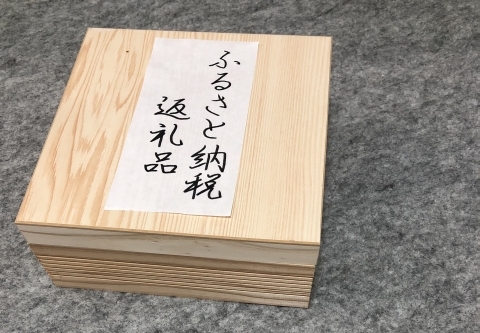 ふるさと納税
返礼品